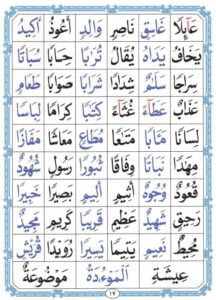 عَآئِلًا غَاسِقٍ نَاصِرٍ وَالِدٍ أَعُوذُ أَكِيدُ
يَخَافُ يَدَاهُ يُقَالُ تُرَابًا حِسَابًا سُبَاتًا
سِرَاجًا سَلٰمٌ شِدَادًا شَرَابًا صَوَابًا طَعَامٍ
عَذَابٌ عَطَآءً غُثَآءً كِتٰبًا كِرَامًا لِبَاسًا
لِسَانًا مَاٰبًا مَتَاعًا مُطَاعٍ مَعَاشًا مَفَازًا
مِهٰدًا نَبَاتًا وِفَاقًا ثُبُورًا رَسُولٍ شُهُودٌ
قُعُودٌ وُجُوهٌ أَلِيمٍ بَصِيرًا خَبِيرًا
رَحِيقٍ شَهِيدٌ عَظِيمٍ قَرِيبًا كَرِيمٍ مَجِيدٌ
مُحِيطٌ نَعِيمٍ يَتِيمًا يَسِيرًا رُوَيْدًا قُرَيْشٍ
عِيشَةٍ الْمَوْءُدَةُ مَوْضُوعَةٌ
١٧